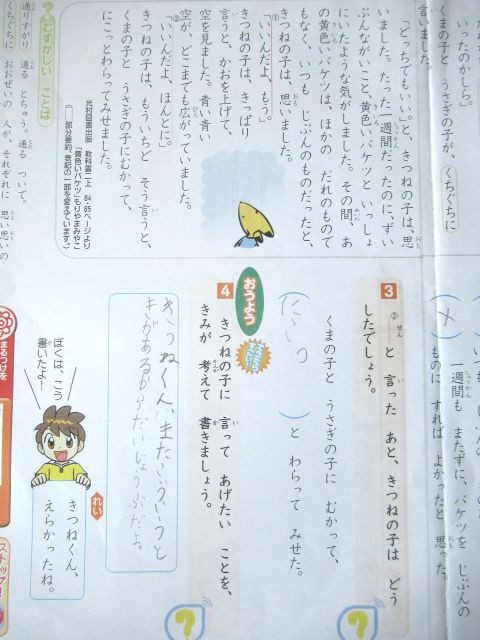 いったのかしら。」
くまの子と うさぎの子が、くちぐちに
言いました。
「どっちでもいい。」と、きつねの子は、思
いました。たった一週間だったのに、ずい
ぶんながいこと、黄色いバケツと いっしょ
にいたような気がしました。その間、あ
の黄色いバケツは、ほかの だれのもので
もなく、いつも じぶんのものだったと、
きつねの子は、思いました。
①「いいんだよ、もう。」
きつねの子は、きっぱり
言うと、かおを上げて、
空を見ました。青い青い
空が、どこまでも広がっていました。
②「いいんだよ、ほんとに。」
きつねの子は、もういちど そう言うと、
くまの子と うさぎの子にむかって、
にこっとわらってみせました。
光村図書出版 教科書二上 84・85ページより
「黄色いバケツ」もりやまみやこ
(部分要約、表記の一部を変えています。)
? むずかしい ことば
通りすがり 通る とちゅう。通る ついで。
くちぐちに おおぜいの 人が、それぞれに 思い思いの
(メ) 一週間も またずに、バケツを じぶんの
ものに すれば よかったと 思った。
3 ②と 言った あと、きつねの子は どう
したでしょう。
くまの子と うさぎの子に むかって、
(にこっ)と わらって みせた。
おうよう
4 きつねの子に 言って あげたい ことを、
きみが 考えて 書きましょう。
きつねくん、またいついいこと
きがあるからだいじょうぶだよ。
れい
きつねくん、
えらかったね。
ぼくは、こう
書いたよ!
まるつけを
ストップ!